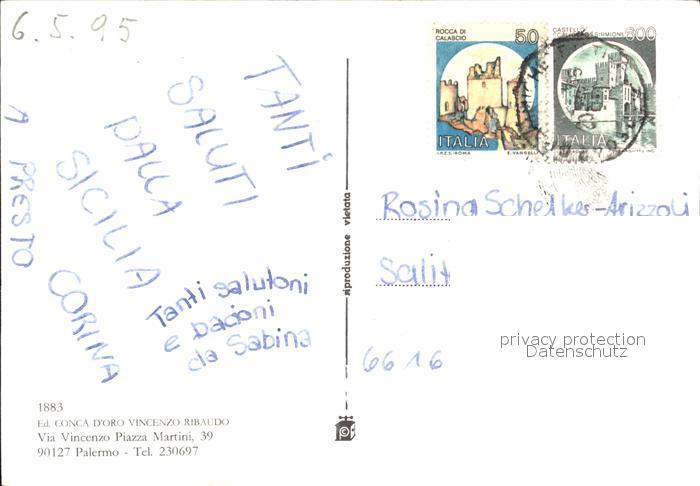 6.5.95
TANTI
SALUTI
DALLA
SICILIA
CORINA
A PRESTO
Tanti salutoni
e bacioni
da Sabina
1883
Ed. CONCA D'ORO VINCENZO RIBAUDO
Via Vincenzo Piazza Martini, 39
90127 Palermo - Tel. 230697
riproduzione vietata
ROCCA DI
CALASCIO
50
ITALIA
I.P.Z.S.-ROMA E. VANGELLI
CASTELLO
SIRMIONE
600
ITALIA
Rosina Schelker-Arizzoli
Salit
6616
privacy protection
Datenschutz